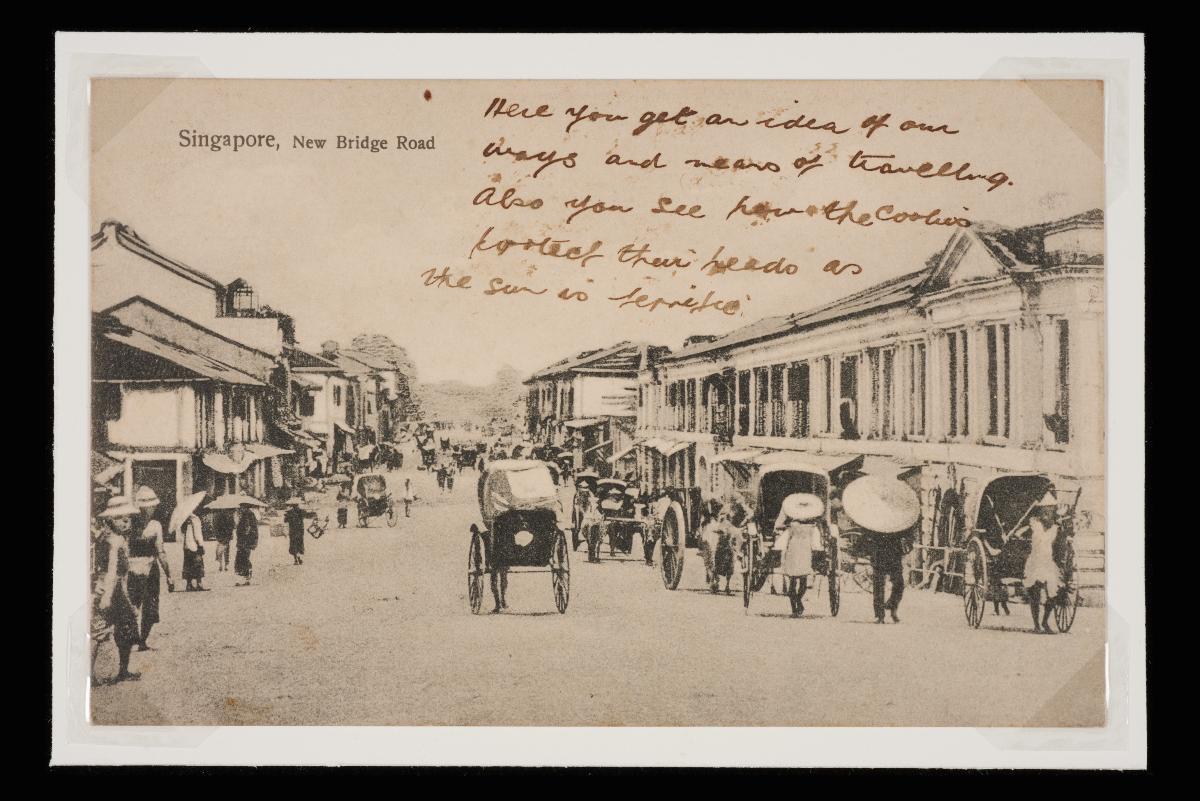 Singapore, New Bridge Road
Here you get an idea of our
ways and means of travelling.
Also you see how the Coolies
protect their heads as
the sun is terrific.